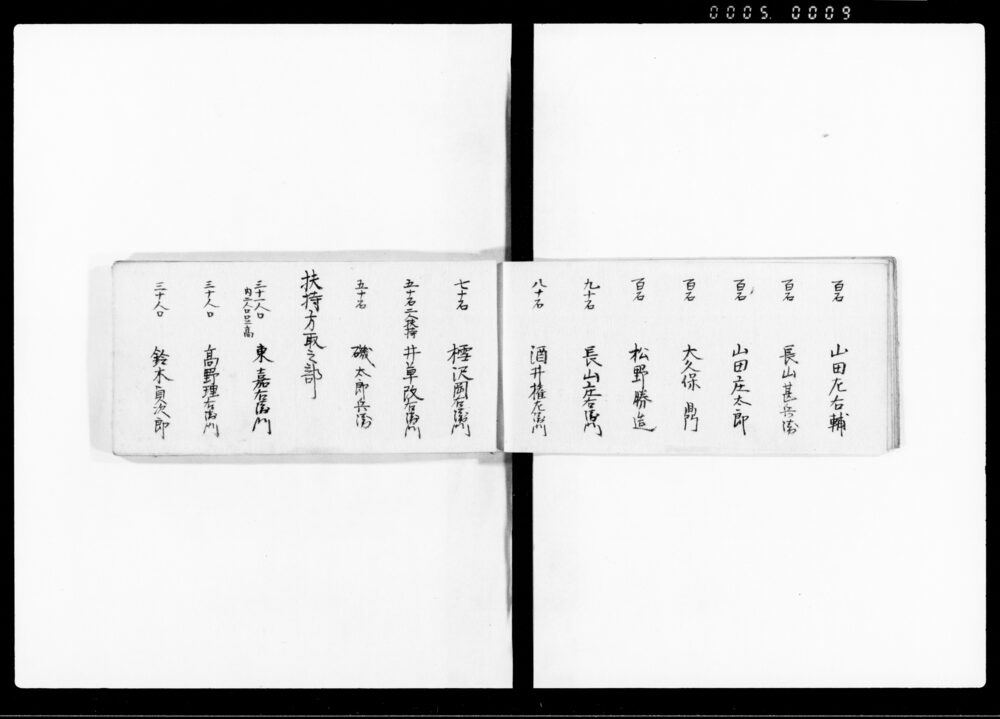 0005 0009
百石 山田左右輔
百石 長山甚兵衛
百石 山田庄太郎
百石 大久保鼎
百石 松野勝造
九十石 長山庄右衛門
八十石 酒井権左衛門
七十石 樫沢園右衛門
五十石二人扶持 井草改右衛門
五十石 磯太郎兵衛
扶持方取之部
三十一人口 東嘉右衛門
三十人口 高野理右衛門
三十人口 鈴木貞次郎